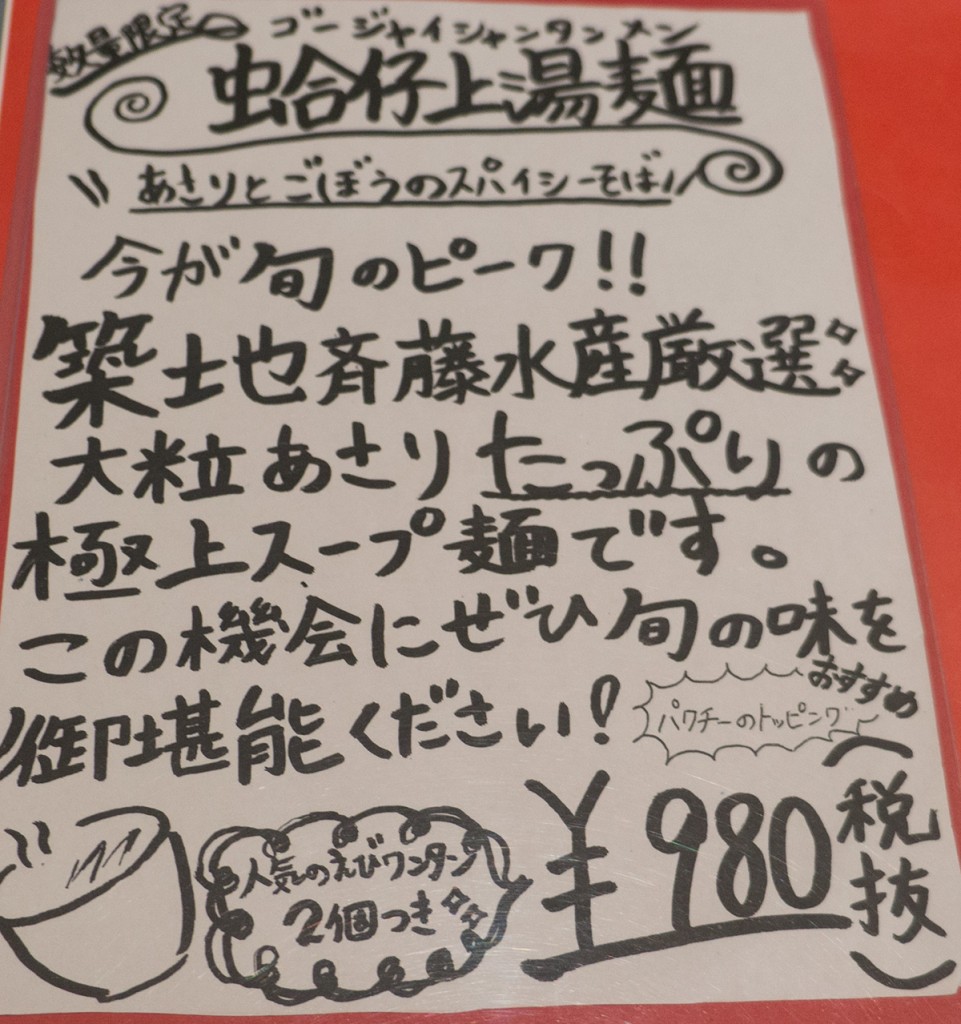 数量限定
ゴージャイシャンタンメン
蛤仔上湯麺
あさりとごぼうのスパイシーそば
今が旬のピーク!!
築土也斉藤水産厳選
大粒あさりたっぷりの
極上スープ麺です。
この機会にぜひ旬の味を
御堪能ください!
おすすめ
パクチーのトッピング
人気のえびワンタン
2個つき
¥980
(税抜)